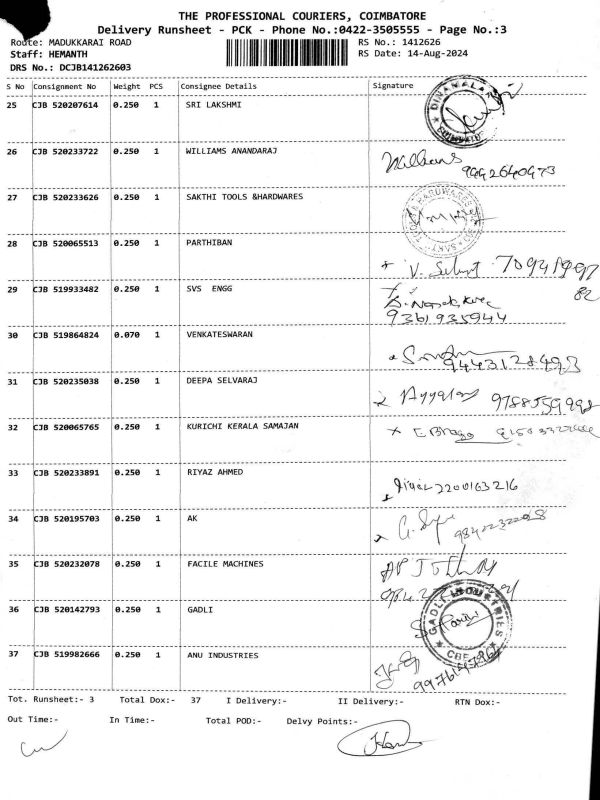 THE PROFESSIONAL COURIERS, COIMBATORE
Delivery Runsheet - PCK - Phone No.:0422-3505555 - Page No.:3
Route: MADUKKARAI ROAD RS No.: 1412626
Staff: HEMANTH RS Date: 14-Aug-2024
DRS No.: DCJB141262603
S No Consignment No Weight PCS Consignee Details Signature
25 CJB 520207614 0.250 1 SRI LAKSHMI
26 CJB 520233722 0.250 1 WILLIAMS ANANDARAJ Williams
27 CJB 520233626 0.250 1 SAKTHI TOOLS &HARDWARES
28 CJB 520065513 0.250 1 PARTHIBAN
29 CJB 519933482 0.250 1 SVS ENGG
9361935944
30 CJB 519864824 0.070 1 VENKATESWARAN
31 CJB 520235038 0.250 1 DEEPA SELVARAJ
32 CJB 520065765 0.250 1 KURICHI KERALA SAMAJAN
33 CJB 520233891 0.250 1 RIYAZ AHMED
34 CJB 520195703 0.250 1 AK
35 CJB 520232078 0.250 1 FACILE MACHINES
36 CJB 520142793 0.250 1 GADLI GADLI INDUSTRIES CBE
37 CJB 519982666 0.250 1 ANU INDUSTRIES
Tot. Runsheet:- 3 Total Dox:- 37 I Delivery:- II Delivery:- RTN Dox:-
Out Time:- In Time:- Total POD:- Delvy Points:-